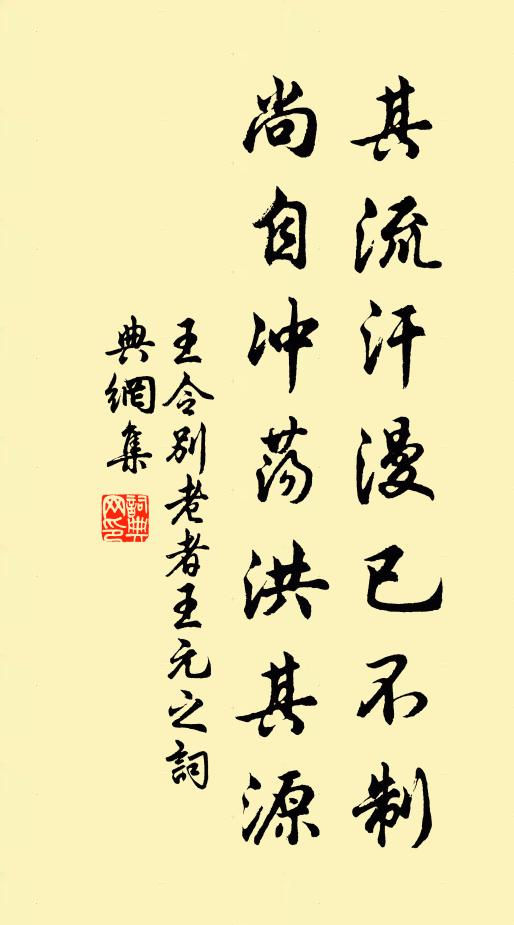 其流汗漫已不制
尚自冲荡洪其源
王令别老者王元之詞
典網集
詞典
网印